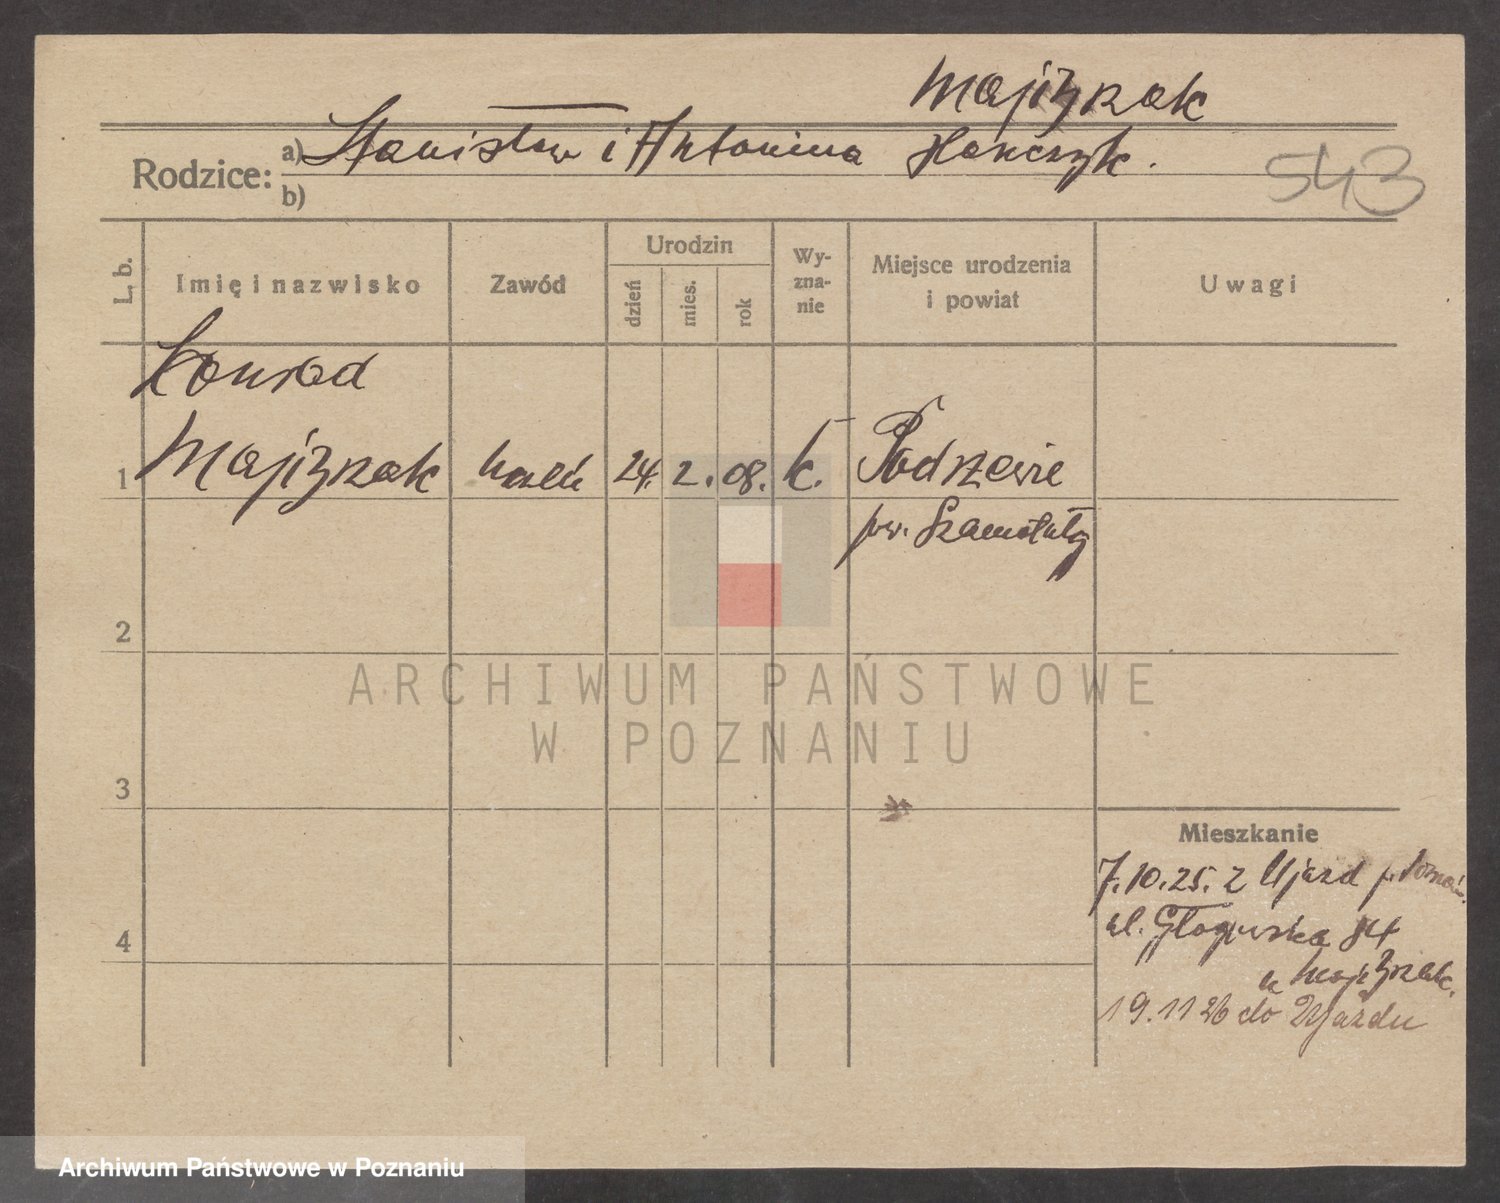 Majżrzak
Rodzice: a) Stanisław i Antonina Hańczyk.
b)
543
L. b. Imię i nazwisko Zawód Urodzin dzień mies. rok Wyzna-nie Miejsce urodzenia i powiat Uwagi
Konrad
1 24. 2. 08. k. Podrzewie
pow. Szamotuły
2
ARCHIWUM PAŃSTWOWE
W POZNANIU
3
Mieszkanie
7.10.25. z Ujazd p. Poznań.
4 ul. Głogowska 84
u
19.11 26 do Ujazdu
Archiwum Państwowe w Poznaniu